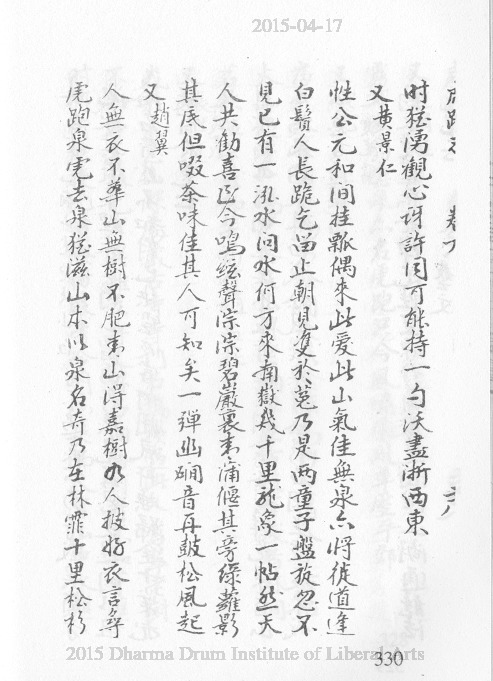 2015-04-17
虎跑志 卷下 三八
时猶湧觀心訝許同可能持一勺沃盡浙西東
又黃景仁
性公元和間挂瓢偶來此愛此山氣佳無泉亦將徙道逢
白鬚人長跪乞留止朝見雙於菟乃是两童子盤旋忽不
見已有一泓水问水何方來南嶽幾千里龍象一帖然天
人共勸喜迄今鳴絃聲淙淙碧巖裏青蒲偃其旁綠蘿影
其底但啜茶味佳其人可知矣一彈幽磵音再鼓松風起
又趙翼
人無衣不華山無樹不肥青山得嘉樹如人披好衣言尋
虎跑泉虎去泉猶滋山本以泉名奇乃在林霏十里松杉
2015 Dharma Drum Institute of Liberal Arts
330